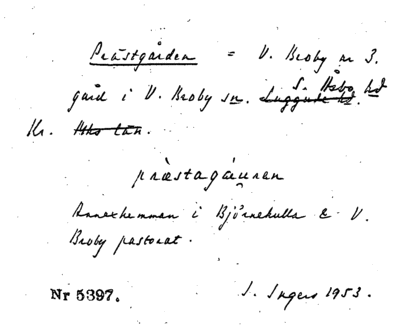 Prästgården = V. Broby nr 3.
S. Åsbo hd
gård i V. Broby sn. Luggude hd.
Kr. Mhs län.
prästagåuren
Annexhemman i Björnekulla & V.
Broby pastorat.
Nr 5397.
I. Ingers 1953.